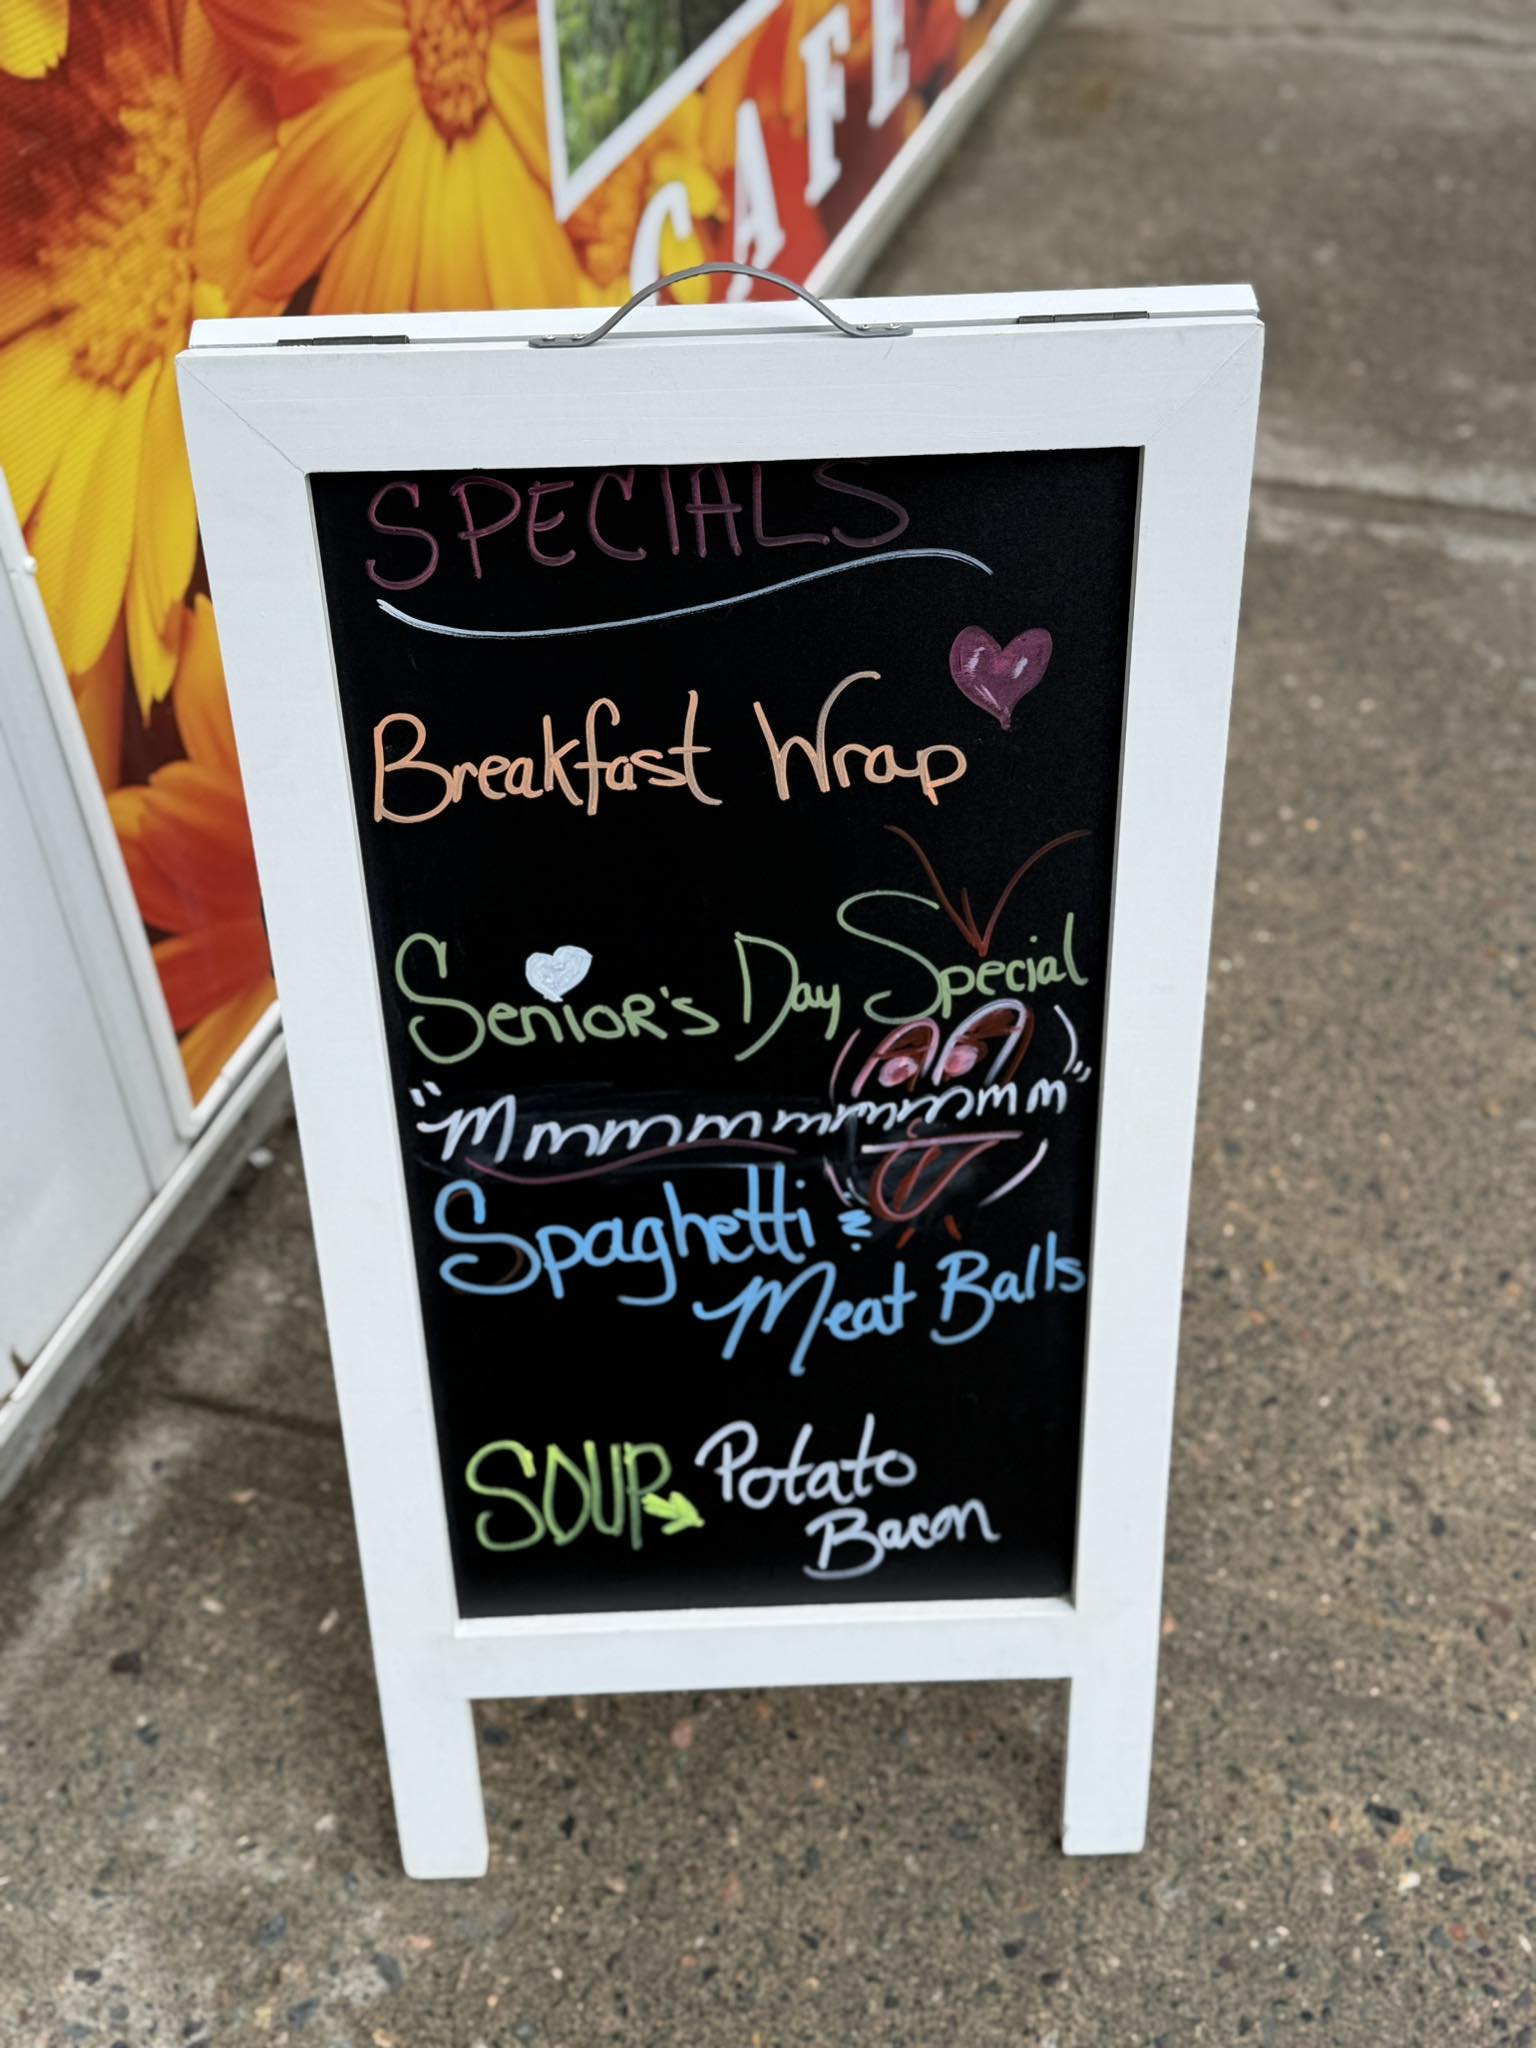 CAFE
SPECIALS
Breakfast Wrap
Senior's Day Special
"Mmmmmmmmmm"
Spaghetti &
Meat Balls
SOUP Potato
Bacon